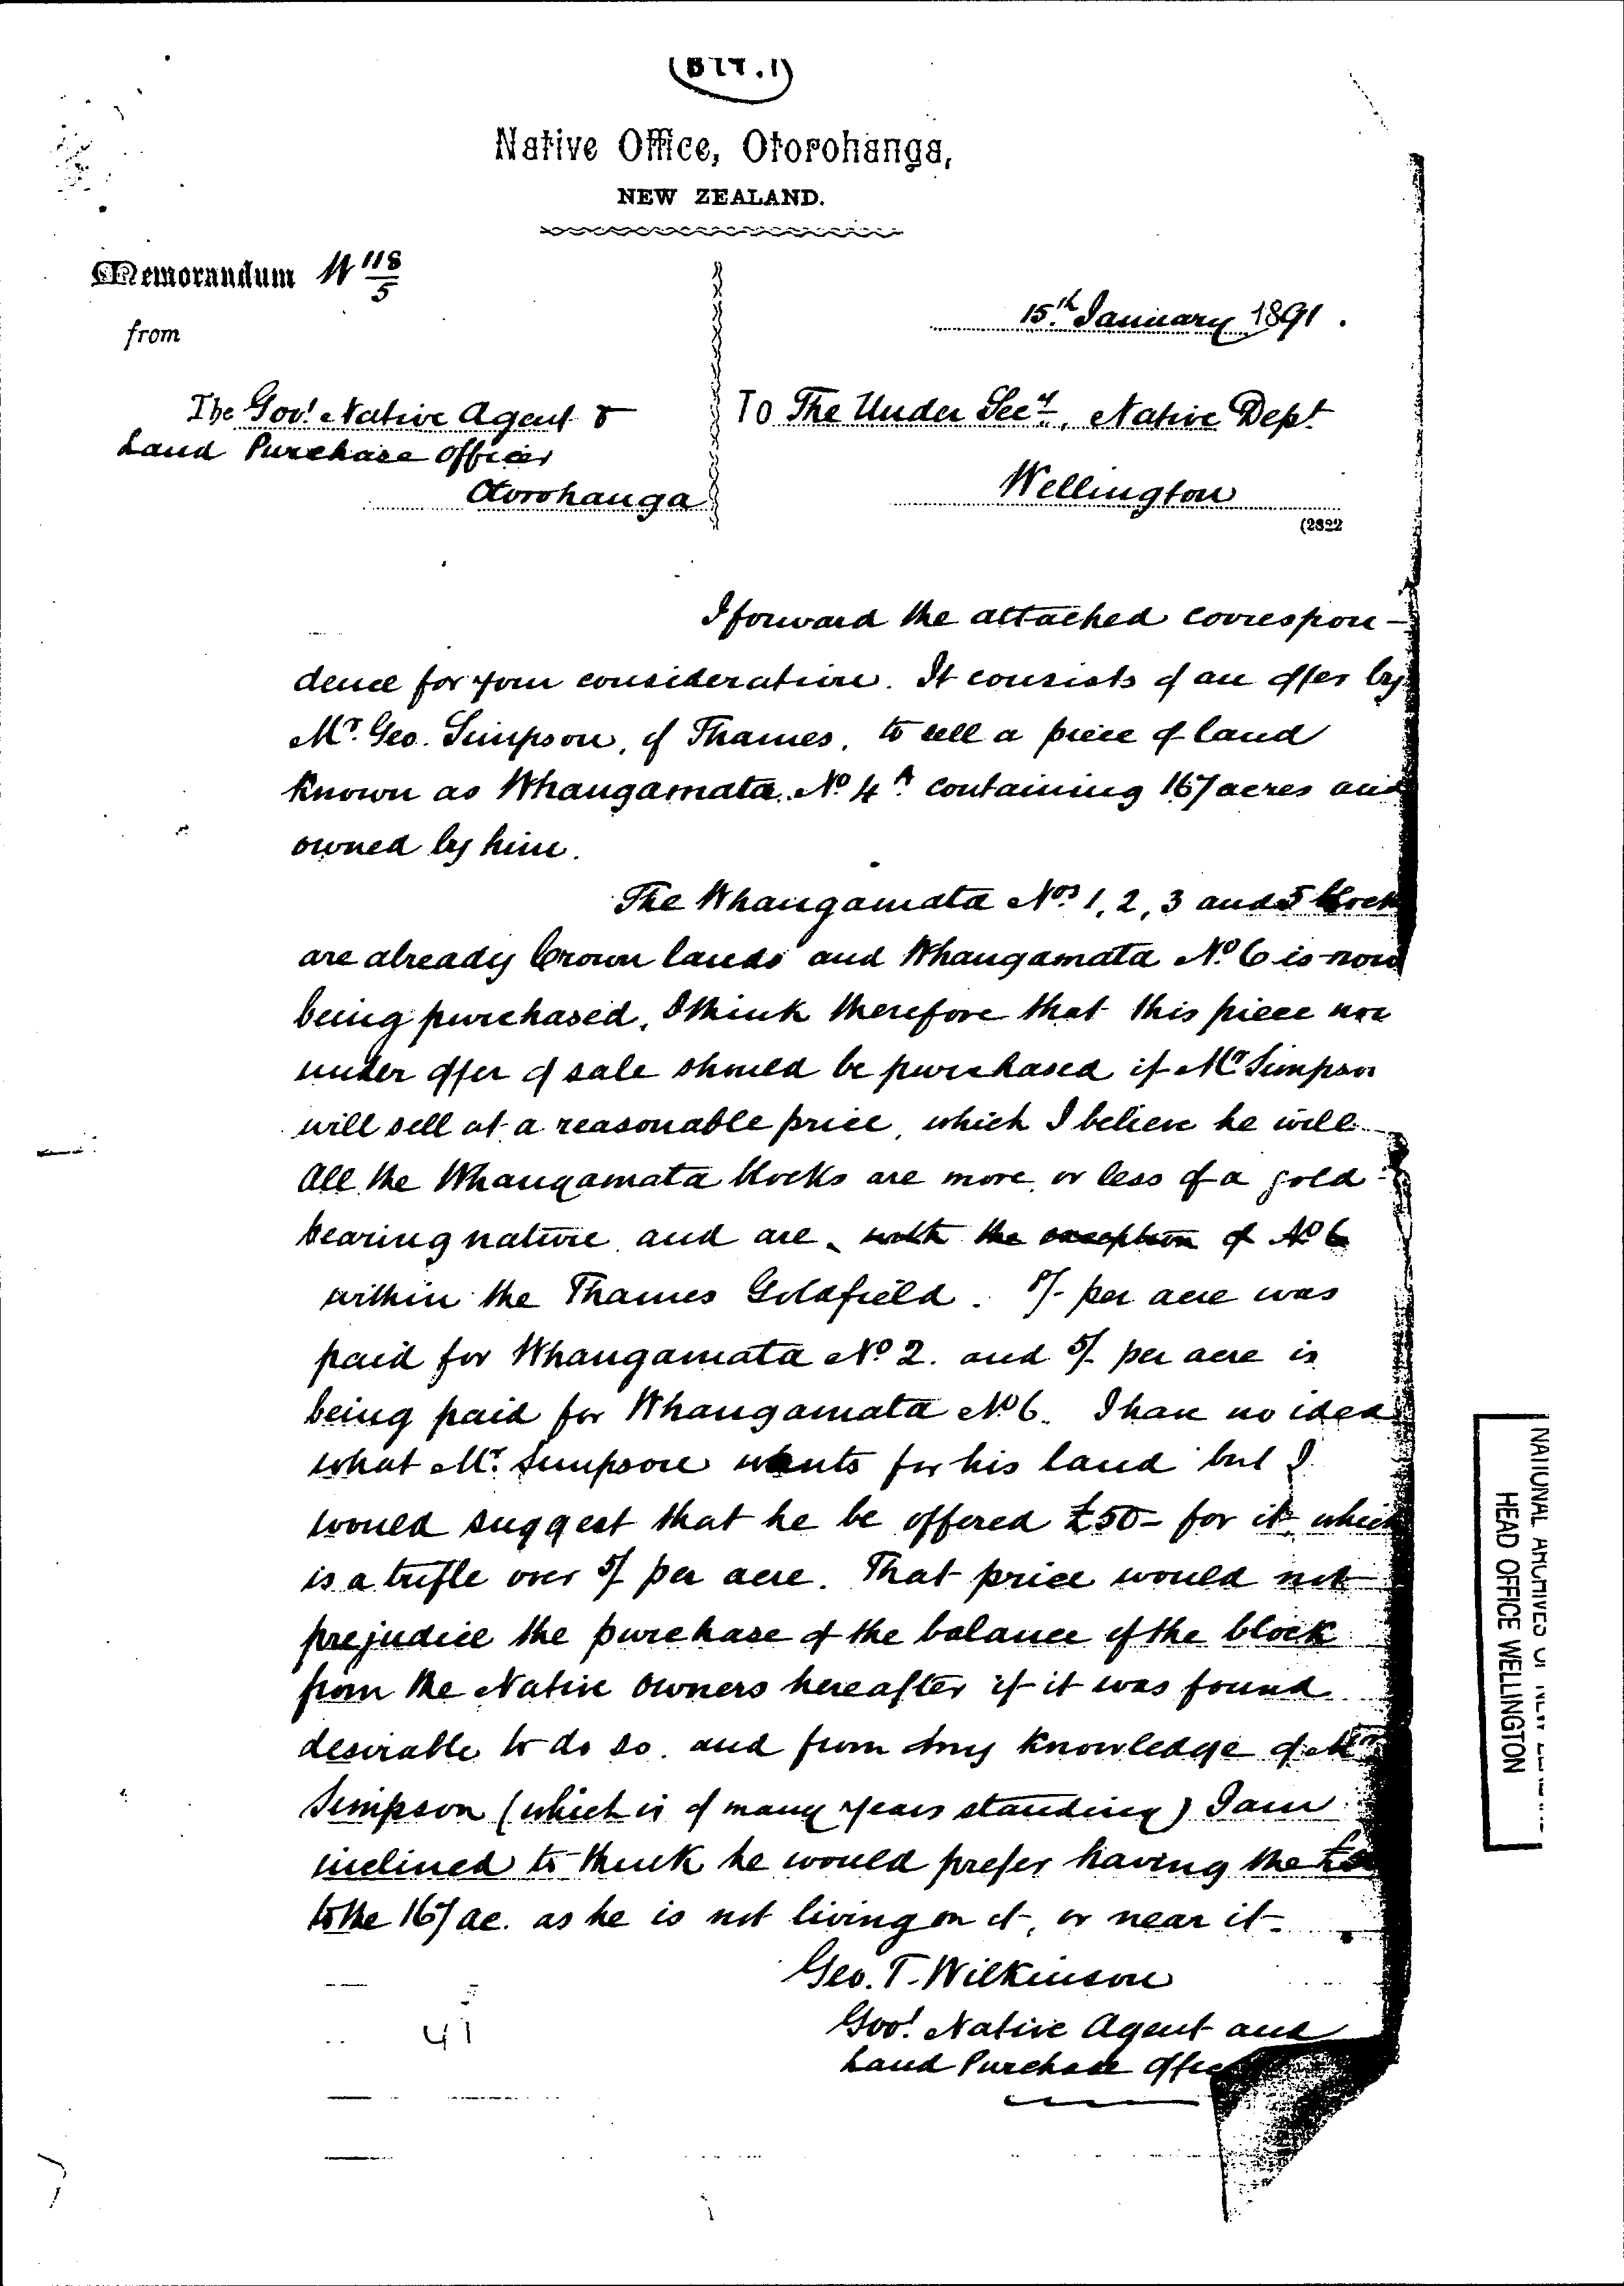 Native Office, Otorohanga,
NEW ZEALAND.
Memorandum No 118/5
from
15th January 1891.
The Govt Native Agent &
Land Purchase Officer
Otorohanga
To The Under Secy, Native Dept
Wellington
(2822
I forward the attached correspon-
dence for your consideration. It consists of an offer by
Mr. Geo. Simpson, of Thames, to sell a piece of land
known as Whangamata No 4A containing 167 acres and
owned by him.
The Whangamata Nos 1, 2, 3 and 5 block
are already Crown lands and Whangamata No 6 is now
being purchased, I think therefore that this piece now
under offer of sale should be purchased if Mr Simpson
will sell at a reasonable price, which I believe he will
All the Whangamata blocks are more or less of a gold-
bearing nature and are, with the exception of No 6
within the Thames Goldfield. /- per acre was
paid for Whangamata No 2. and 5/- per acre is
being paid for Whangamata No 6. I have no idea
what Mr. Simpson wants for his land but I
would suggest that he be offered £50- for it which
is a trifle over 5/- per acre. That price would not
prejudice the purchase of the balance of the block
from the Native owners hereafter if it was found
desirable to do so. and from my knowledge of Mr
Simpson (which is of many years standing) I am
inclined to think he would prefer having the
to the 167 ac. as he is not living on it, or near it.
Geo. T. Wilkinson
Govt Native Agent and
Land Purchase Offic
41
NATIONAL ARCHIVES OF NEW
HEAD OFFICE WELLINGTON